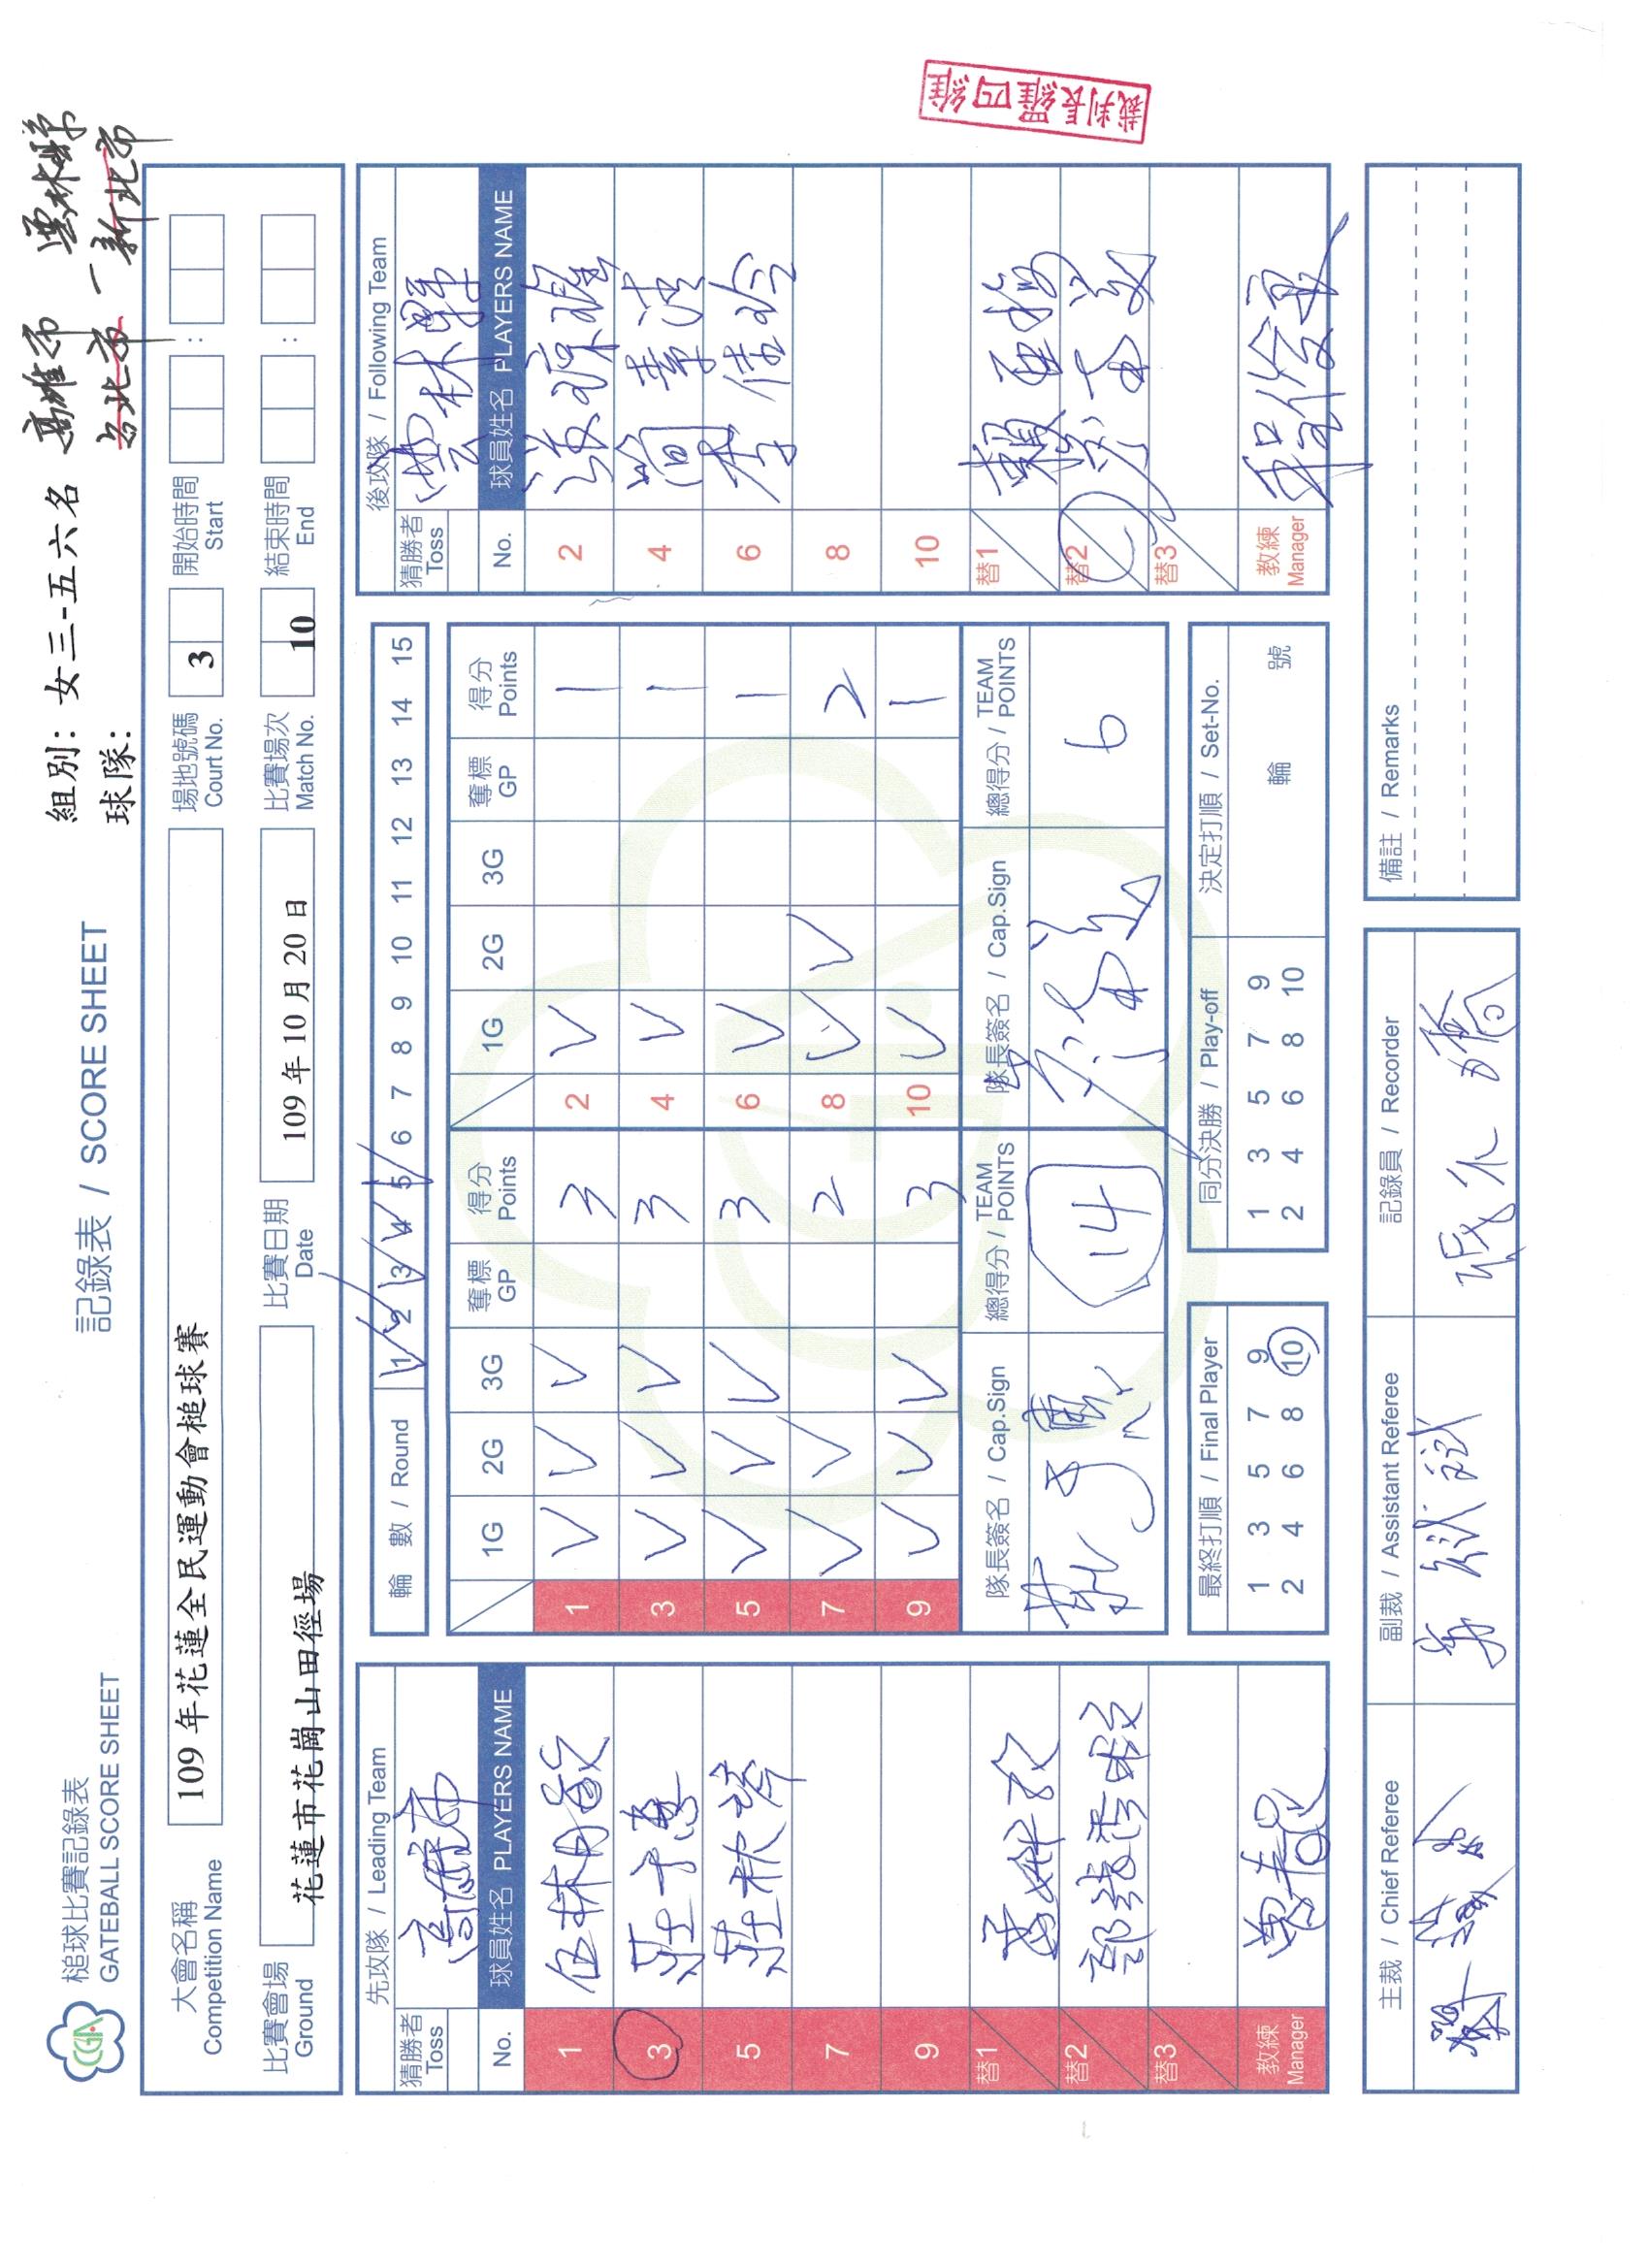 組別: 女三-五六名 高雄市 雲林縣
球隊: 台北市 — 新北市
CGA
槌球比賽記錄表
GATEBALL SCORE SHEET
記錄表 / SCORE SHEET
大會名稱 Competition Name 109 年花蓮全民運動會槌球賽
場地號碼 Court No. 3
開始時間 Start :
比賽會場 Ground 花蓮市花崗山田徑場
比賽日期 Date 109 年 10 月 20 日
比賽場次 Match No. 10
結束時間 End :
猜勝者 Toss 先攻隊 / Leading Team
高雄市
No. 球員姓名 PLAYERS NAME
1
3 莊千慧
5 莊秋
7
9
替1
替2
替3
教練 Manager
輪 數 / Round 1 2 3 4 5 6 7 8 9 10 11 12 13 14 15
1G 2G 3G 奪標 GP 得分 Points 1G 2G 3G 奪標 GP 得分 Points
1 V V V 3 2 V 1
3 V V V 3 4 V 1
5 V V V 3 6 V 1
7 V V 2 8 V V 2
9 V V V 3 10 V 1
隊長簽名 / Cap.Sign 總得分 / TEAM POINTS 隊長簽名 / Cap.Sign 總得分 / TEAM POINTS
14 6
最終打順 / Final Player
1 3 5 7 9
2 4 6 8 10
同分決勝 / Play-off
1 3 5 7 9
2 4 6 8 10
決定打順 / Set-No.
輪 號
猜勝者 Toss 後攻隊 / Following Team
雲林縣
No. 球員姓名 PLAYERS NAME
2
4 簡
6 李佳玲
8
10
替1 賴
替2
替3
教練 Manager
主裁 / Chief Referee
副裁 / Assistant Referee
記錄員 / Recorder
備註 / Remarks
裁判長羅四維